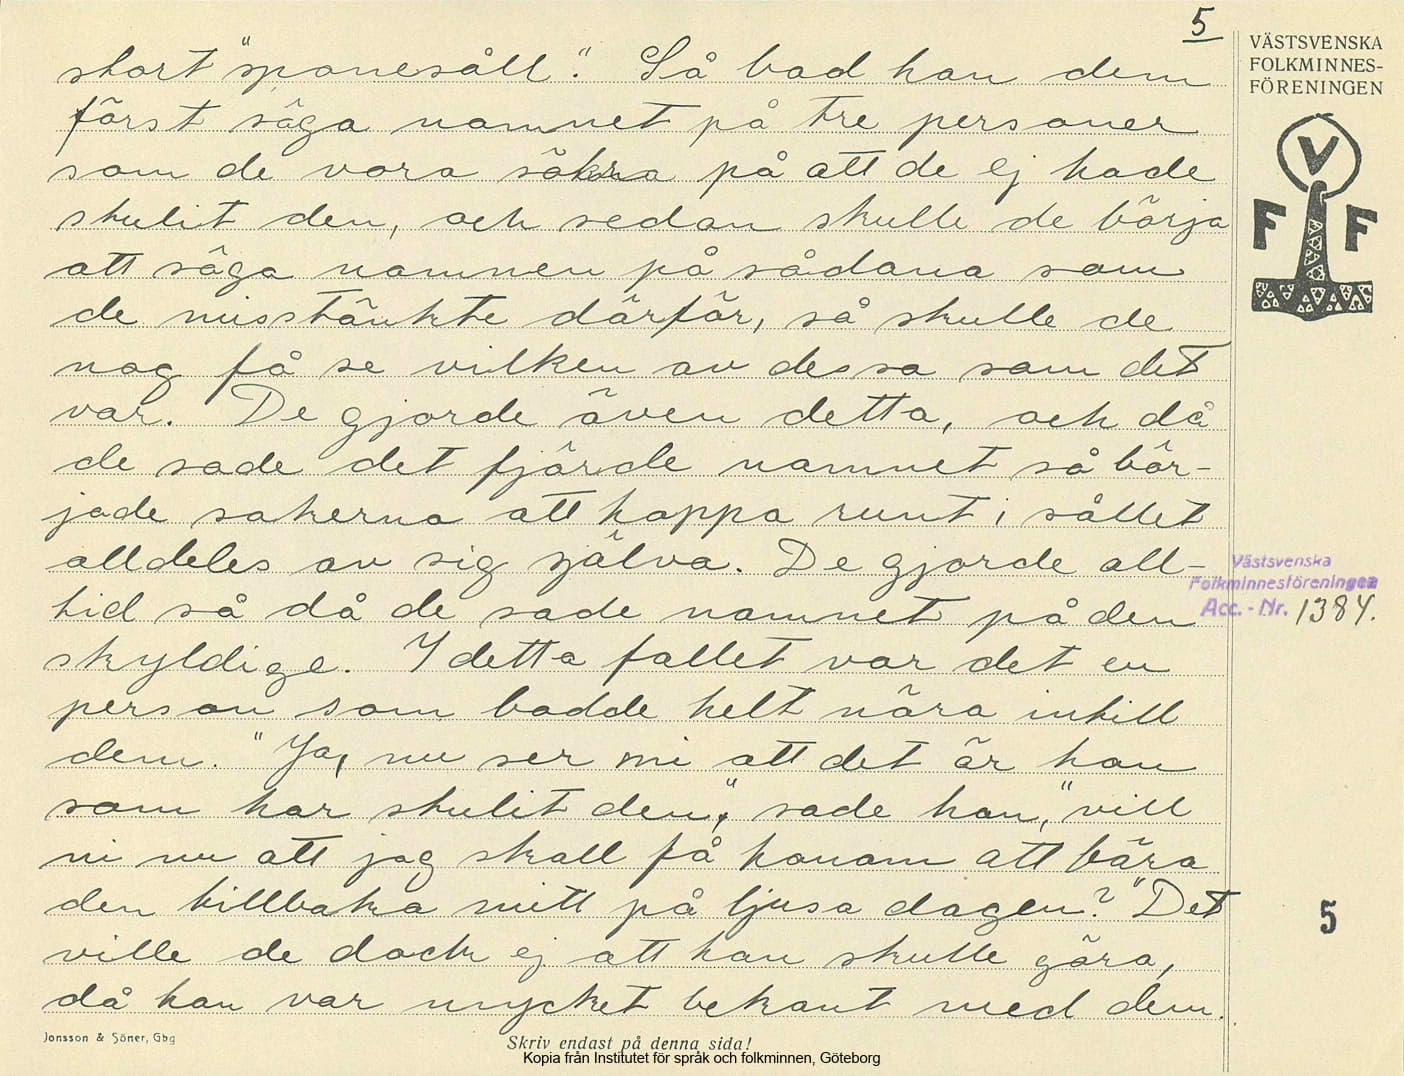 5
stort "sponesåll". Så bad han dem
först säga namnet på tre personer
som de voro säkra på att de ej hade
stulit den, och sedan skulle de börja
att säga namnen på sådana som
de misstänkte därför, så skulle de
nog få se vilken av dessa som det
var. De gjorde även detta, och då
de sade det fjärde namnet så bör-
jade sakerna att hoppa runt i sållet
alldeles av sig själva. De gjorde all-
tid så då de sade namnet på den
skyldige. I detta fallet var det en
person som bodde helt nära intill
dem. "Ja, nu ser ni att det är han
som har stulit den," sade han, "vill
ni nu att jag skall få honom att bära
den tillbaka mitt på ljusa dagen?" Det
ville de dock ej att han skulle göra,
då han var mycket bekant med dem.
VÄSTSVENSKA
FOLKMINNES-
FÖRENINGEN
V
F F
Västsvenska
Folkminnesföreningen
Acc. - Nr. 1384.
5
Jonsson & Söner, Gbg
Skriv endast på denna sida!
Kopia från Institutet för språk och folkminnen, Göteborg